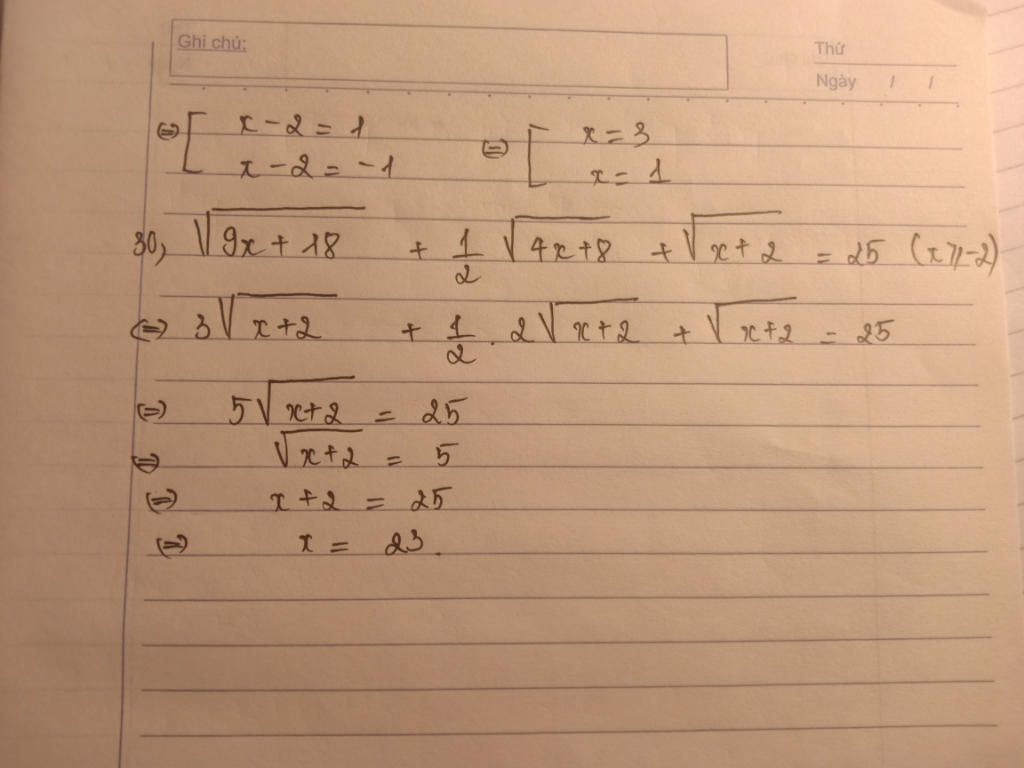 Ghi chú:
Thứ
Ngày / /
⇔ [ x - 2 = 1 ⇔ [ x = 3
x - 2 = -1 x = 1
30, √(9x + 18) + 1/2 √(4x + 8) + √(x + 2) = 25 (x ≥ -2)
⇔ 3√(x + 2) + 1/2 . 2√(x + 2) + √(x + 2) = 25
⇔ 5√(x + 2) = 25
⇔ √(x + 2) = 5
⇔ x + 2 = 25
⇔ x = 23.